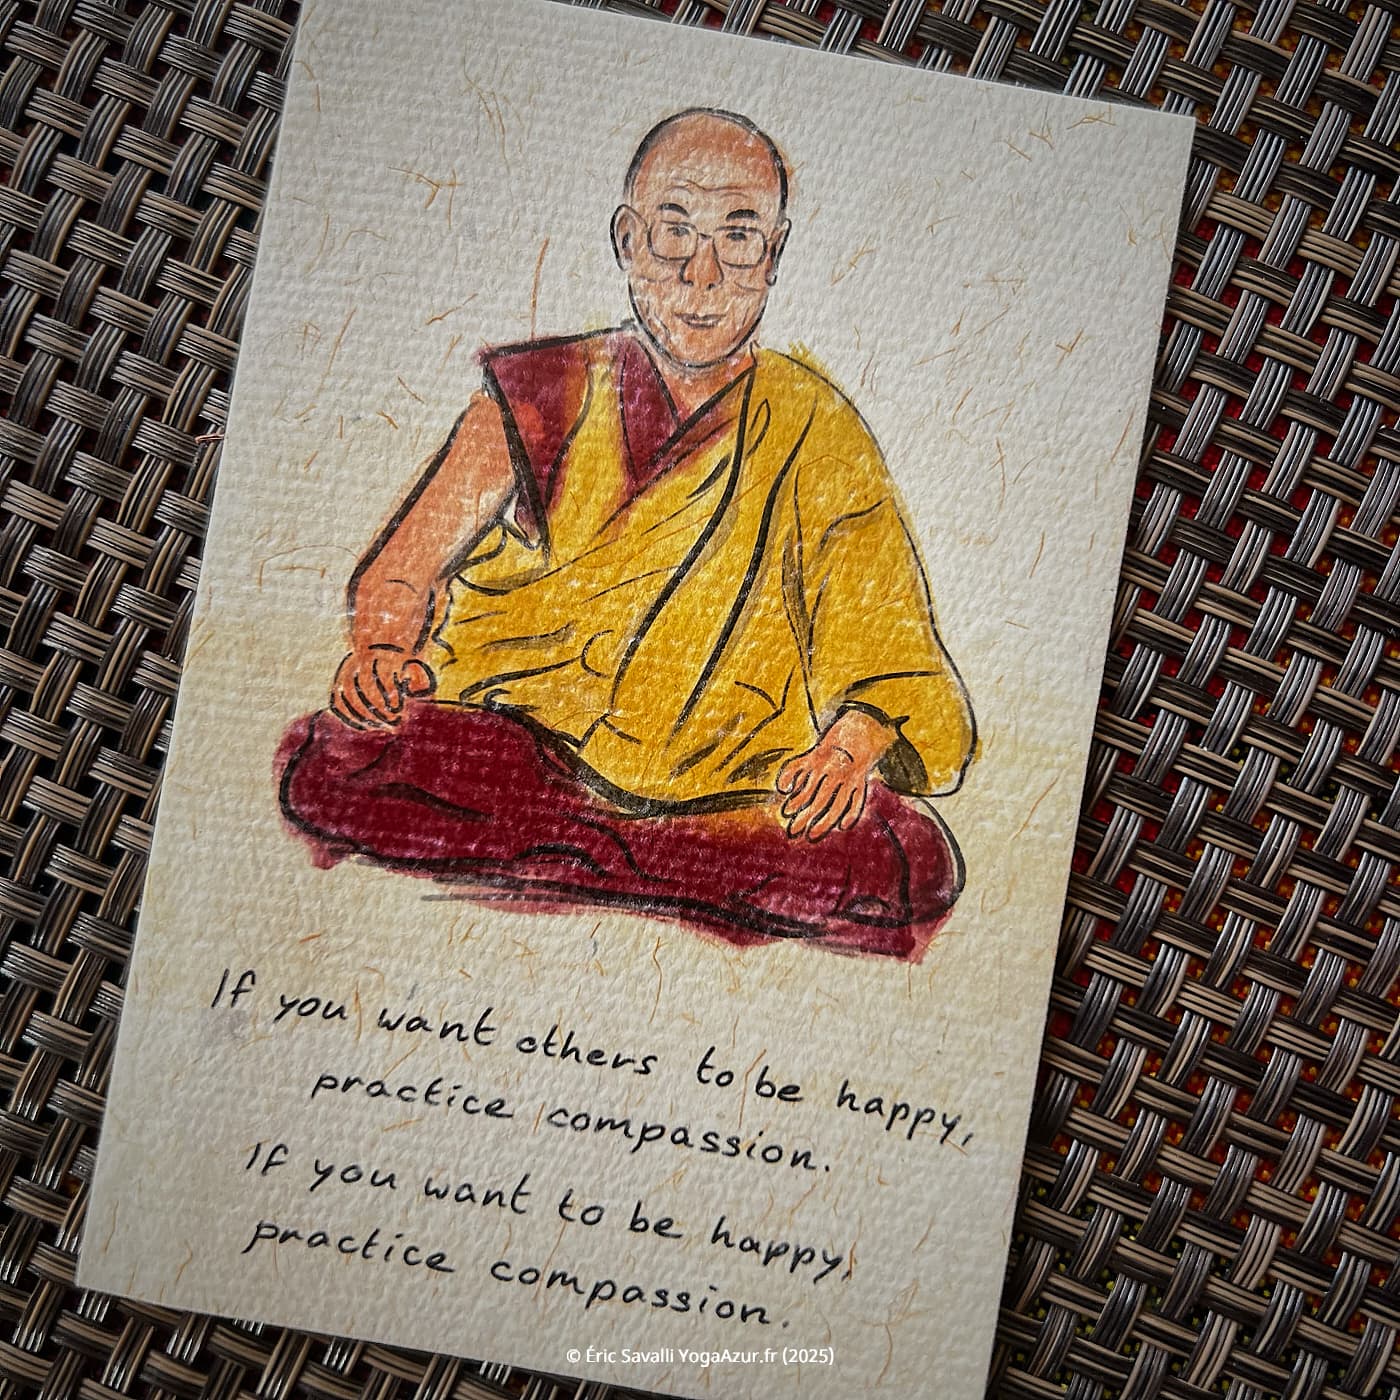 If you want others to be happy,
practice compassion.
If you want to be happy,
practice compassion.
© Éric Savalli YogaAzur.fr (2025)